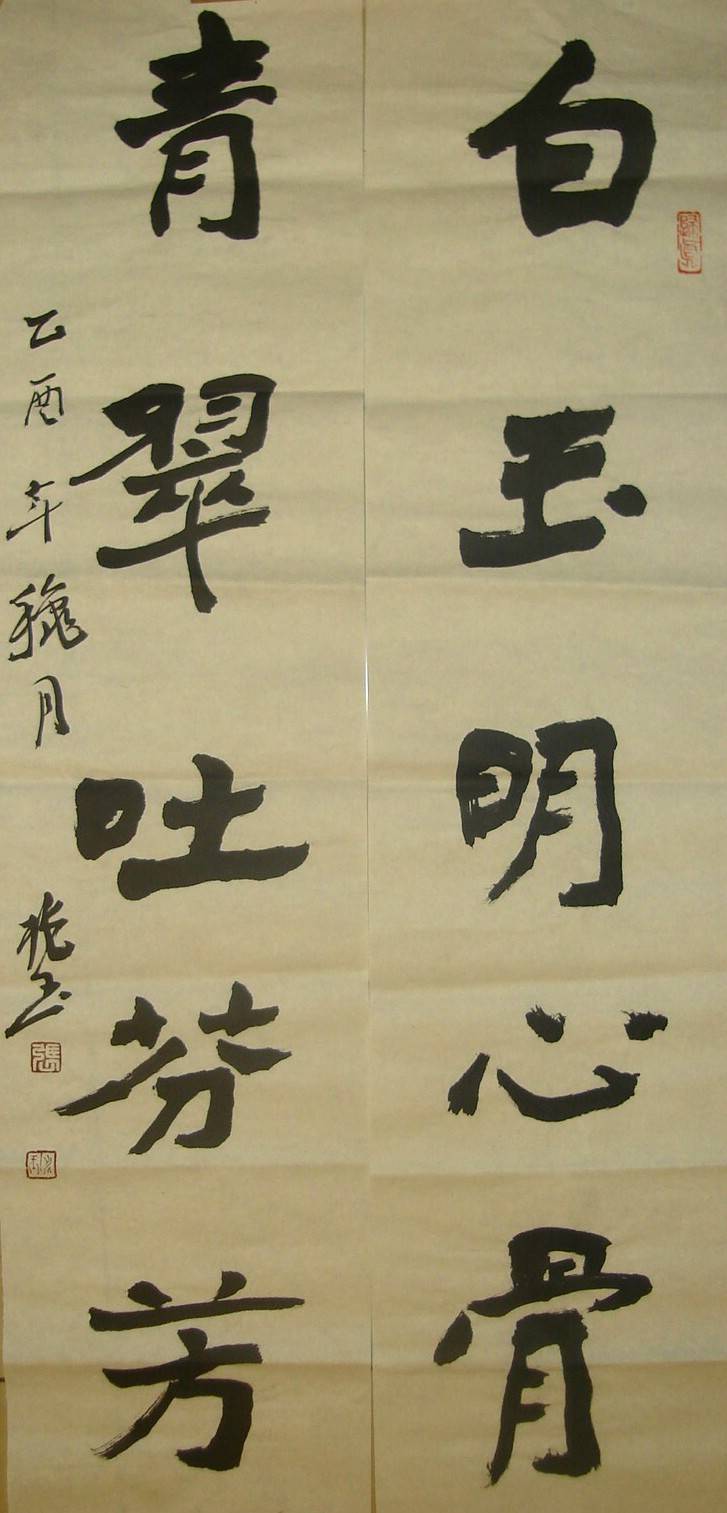 白玉明心骨
青翠吐芬芳
乙酉年穐月
張